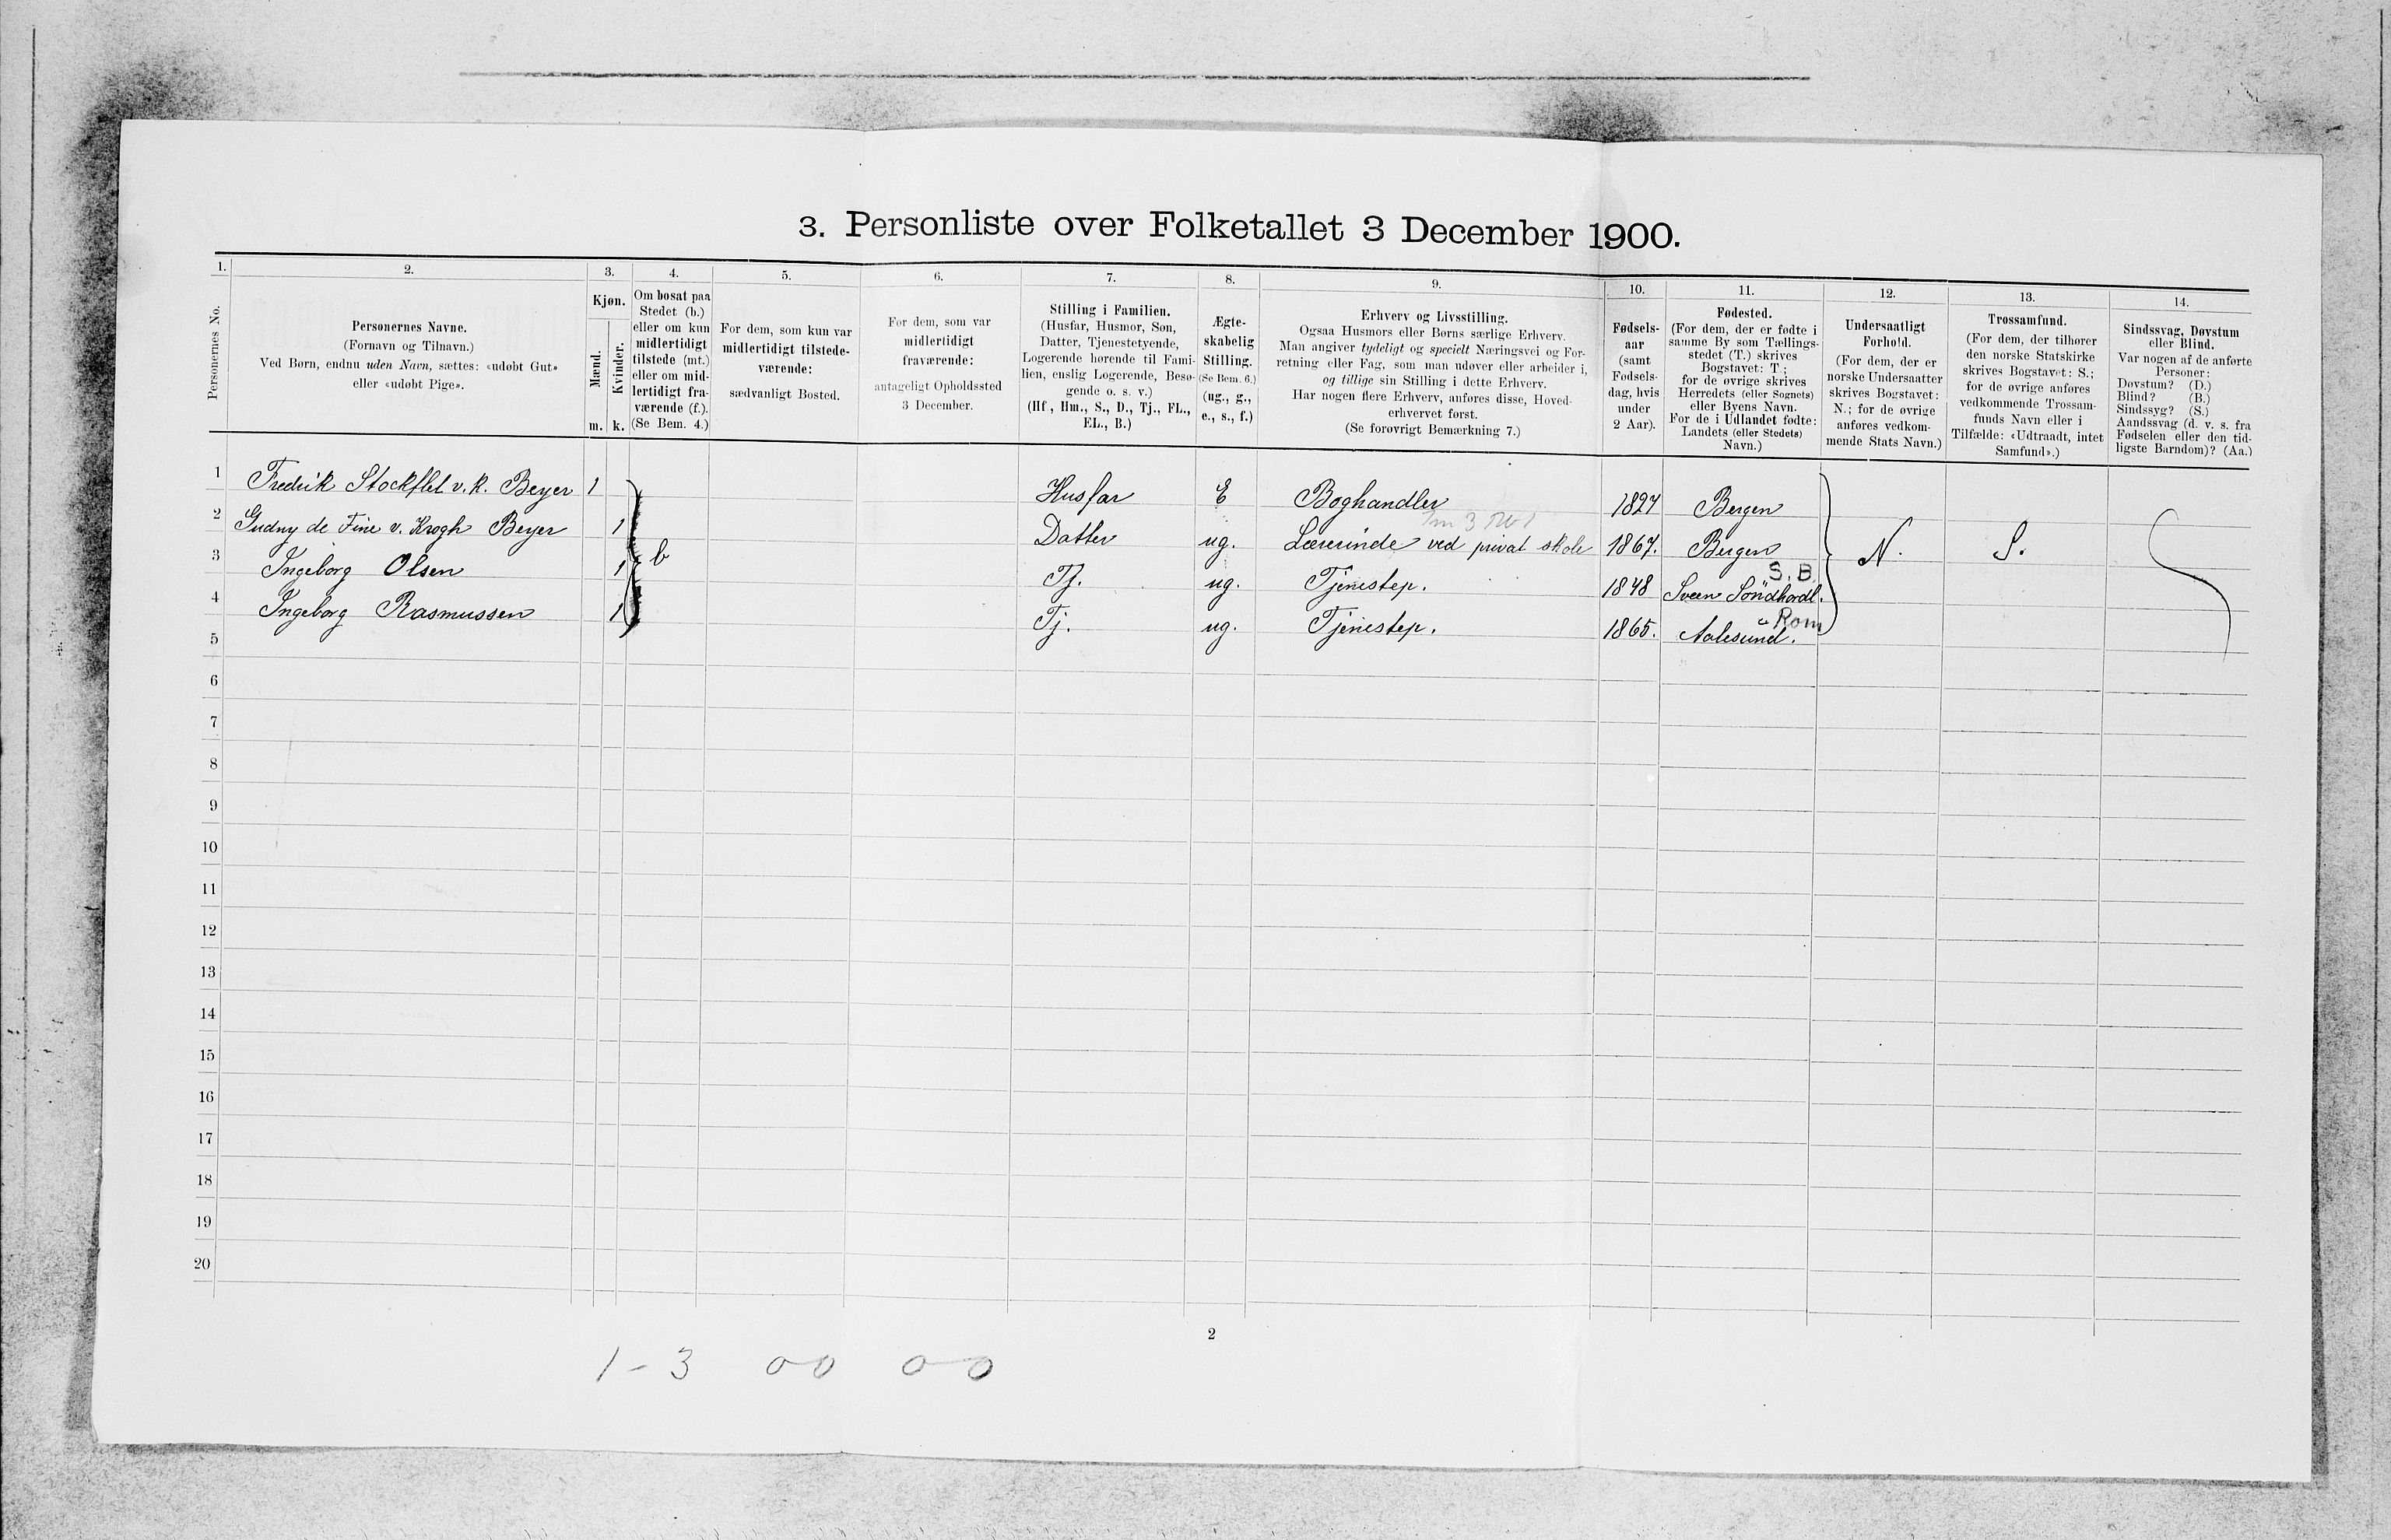 3. Personliste over Folketallet 3 December 1900.
1. 2. 3. 4. 5. 6. 7. 8. 9. 10. 11. 12. 13. 14.
Personernes No.
Personernes Navne.
(Fornavn og Tilnavn.)
Ved Børn, endnu uden Navn, sættes: «udøbt Gut»
eller «udøbt Pige».
Kjøn.
Mænd.
Kvinder.
m. k.
Om bosat paa
Stedet (b.)
eller om kun
midlertidigt
tilstede (mt.)
eller om mid-
lertidigt fra-
værende (f.).
(Se Bem. 4.)
For dem, som kun var
midlertidigt tilstede-
værende:
sædvanligt Bosted.
For dem, som var
midlertidigt
fraværende:
antageligt Opholdssted
3 December.
Stilling i Familien.
(Husfar, Husmor, Søn,
Datter, Tjenestetyende,
Logerende hørende til Fami-
lien, enslig Logerende, Besø-
gende o. s. v.)
(Hf., Hm., S., D., Tj., FL.,
EL., B.)
Ægte-
skabelig
Stilling.
(Se Bem. 6.)
(ug., g.,
e., s., f.)
Erhverv og Livsstilling.
Ogsaa Husmors eller Børns særlige Erhverv.
Man angiver tydeligt og specielt Næringsvei og For-
retning eller Fag, som man udøver eller arbeider i,
og tillige sin Stilling i dette Erhverv.
Har nogen flere Erhverv, anføres disse, Hoved-
erhvervet først.
(Se forøvrigt Bemærkning 7.)
Fødsels-
aar
(samt
Fødsels-
dag, hvis
under
2 Aar).
Fødested.
(For dem, der er fødte i
samme By som Tællings-
stedet (T.) skrives
Bogstavet: T.;
for de øvrige skrives
Herredets (eller Sognets)
eller Byens Navn.
For de i Udlandet fødte:
Landets (eller Stedets)
Navn.)
Undersaatligt
Forhold.
(For dem, der er
norske Undersaatter
skrives Bogstavet:
N.; for de øvrige
anføres vedkom-
mende Stats Navn.)
Trossamfund.
(For dem, der tilhører
den norske Statskirke
skrives Bogstavet: S.;
for de øvrige anføres
vedkommende Trossam-
funds Navn eller i
Tilfælde: «Udtraadt, intet
Samfund».)
Sindssvag, Døvstum
eller Blind.
Var nogen af de anførte
Personer:
Døvstum? (D.)
Blind? (B.)
Sindssyg? (S.)
Aandssvag (d. v. s. fra
Fødselen eller den tid-
ligste Barndom)? (Aa.)
1 Fredrik Stockflet v. k. Beyer 1 Husfar E Boghandler 1827 Bergen
2 Gudny de Fine v. Krogh Beyer 1 Datter ug. Lærerinde ved privat skole 1867. Bergen
b N. S.
S. B.
3 Ingeborg Olsen 1 Tj. ug. Tjenestep. 1848 Sveen Söndhordl.
Rom
4 Ingeborg Rasmussen 1 Tj. ug. Tjenestep. 1865. Aalesund.
5
6
7
8
9
10
11
12
13
14
15
16
17
18
19
20
2
1-3 0-0 0-0